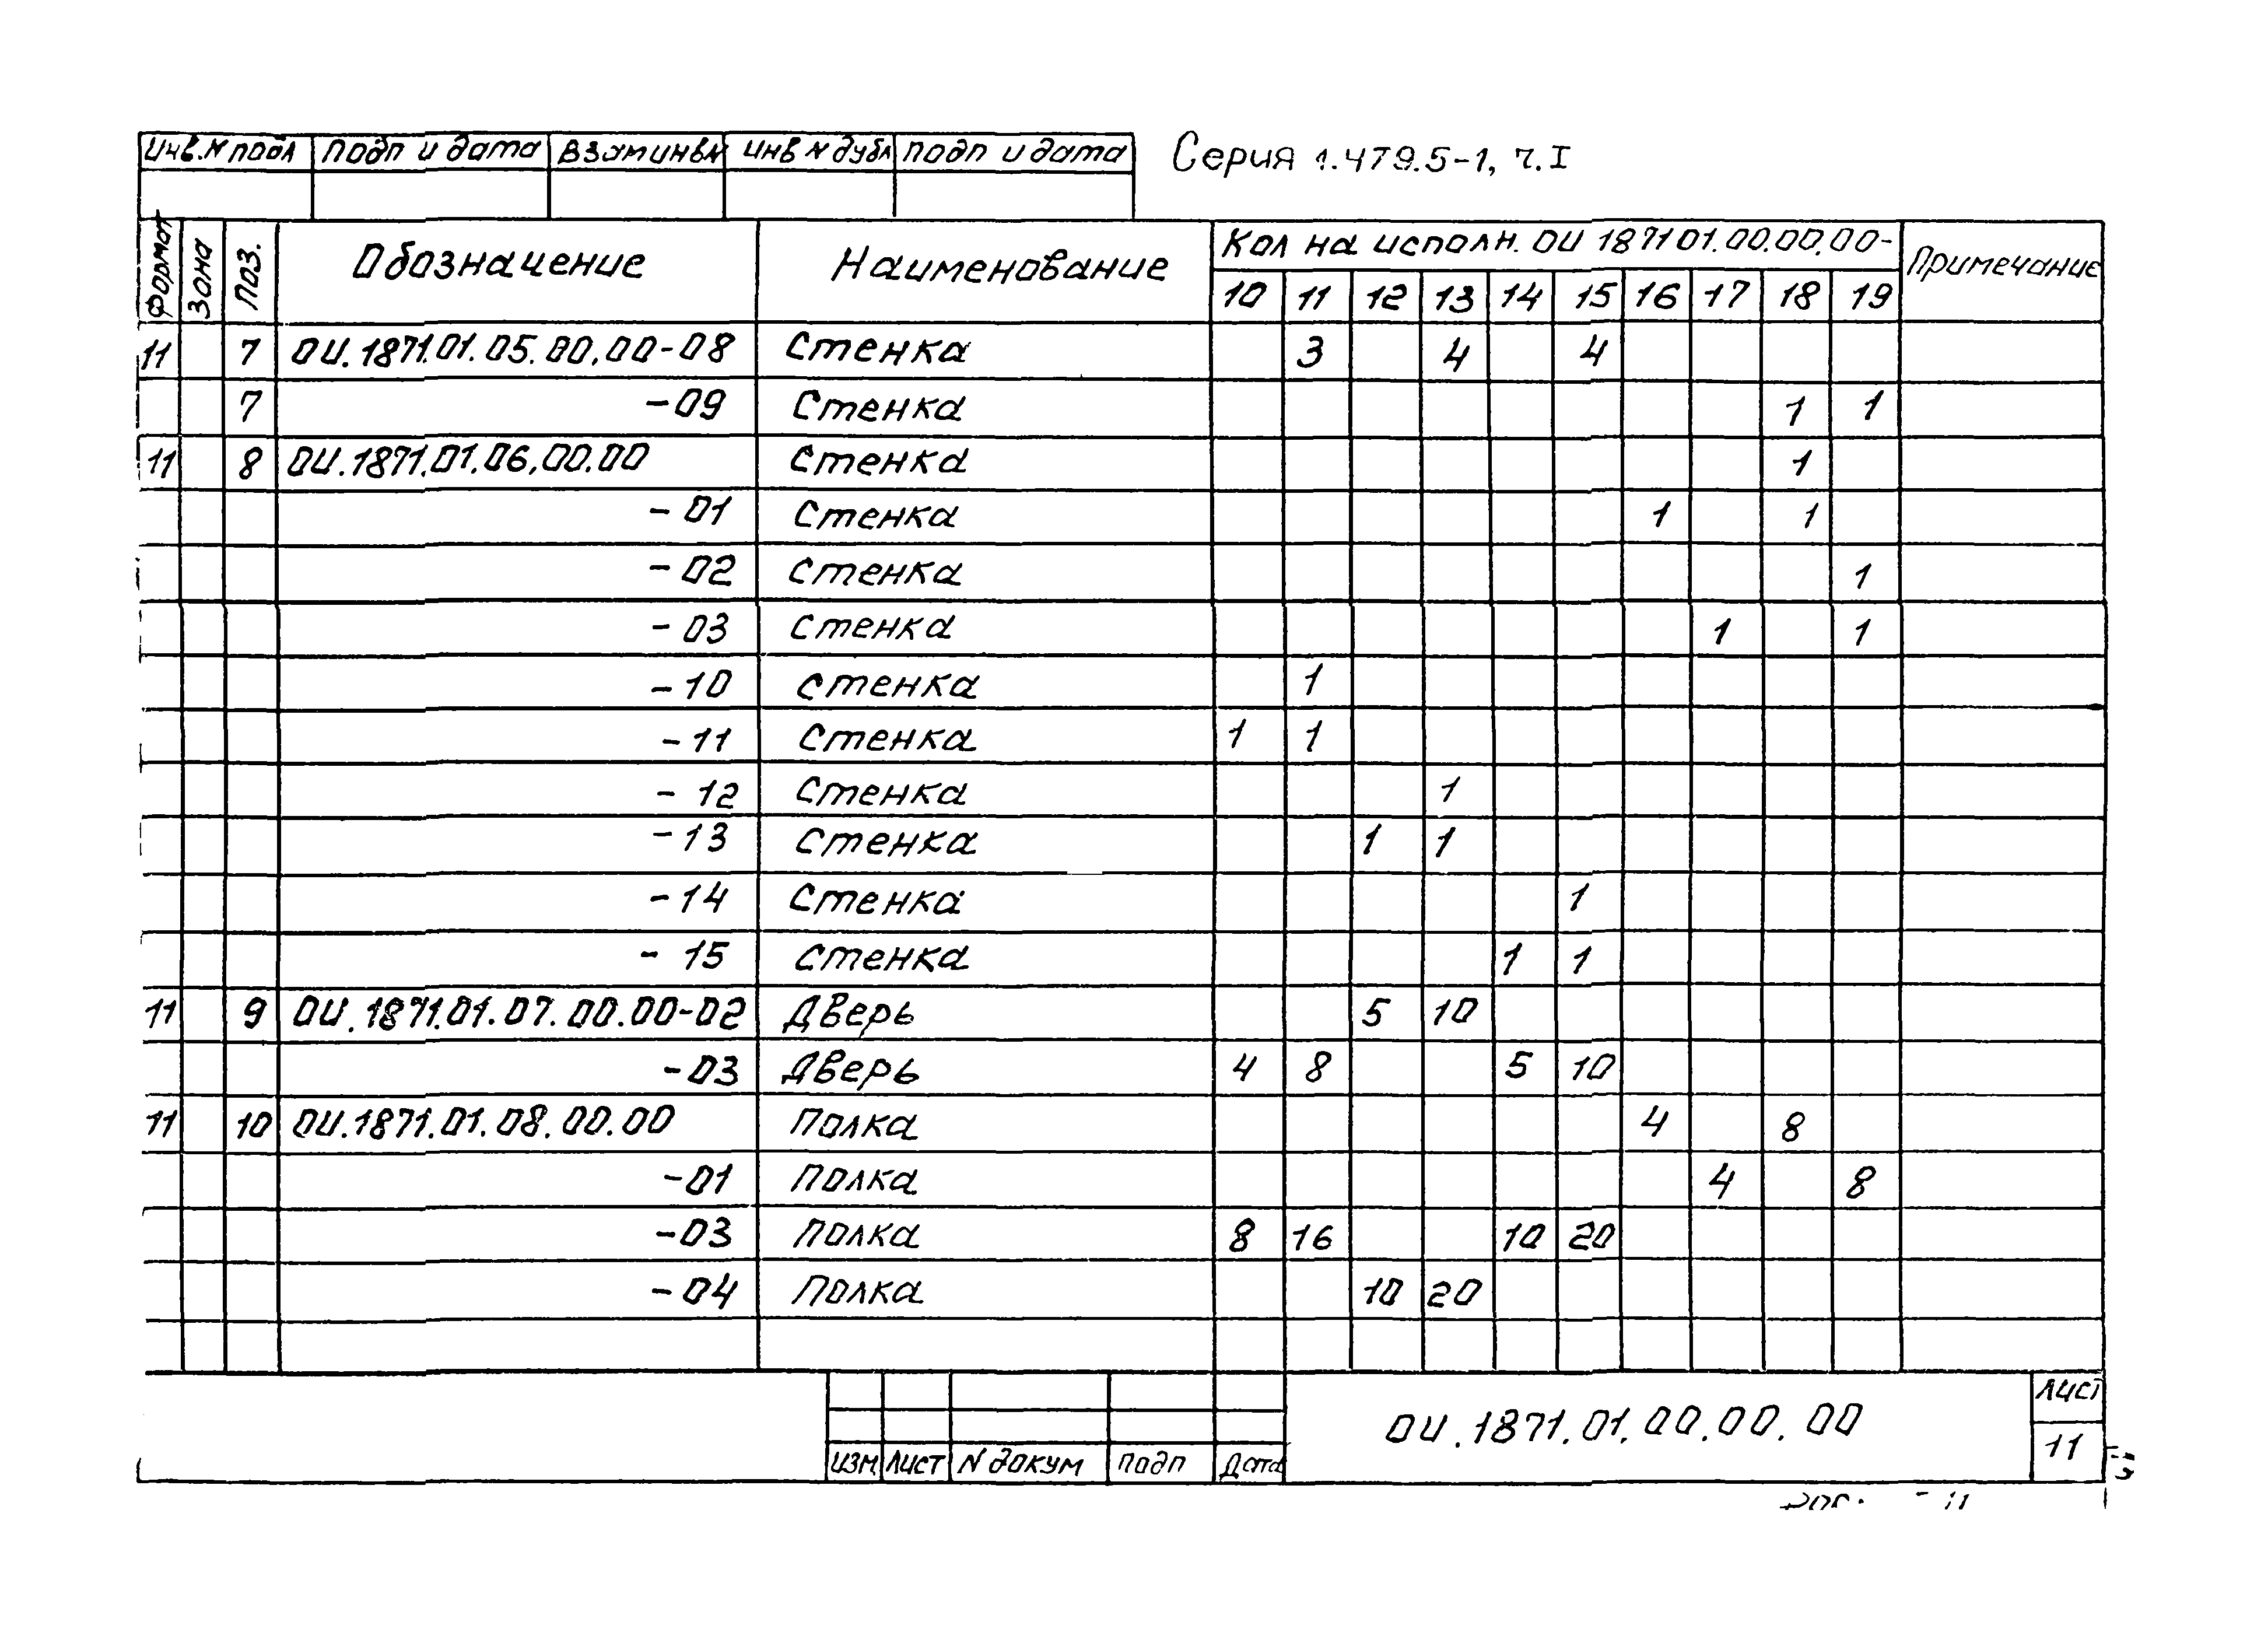 Инв.N подл Подп и дата Взам инв N Инв N дубл Подп и дата Серия 1.479.5-1, ч.I
Формат Зона Поз. Обозначение Наименование Кол на исполн. ОИ 1871 01.00.00.00- Примечание
10 11 12 13 14 15 16 17 18 19
11 7 ОИ.1871.01.05.00.00-08 Стенка 3 4 4
7 -09 Стенка 1 1
11 8 ОИ.1871.01.06.00.00 Стенка 1
-01 Стенка 1 1
-02 Стенка 1
-03 Стенка 1 1
-10 Стенка 1
-11 Стенка 1 1
-12 Стенка 1
-13 Стенка 1 1
-14 Стенка 1
-15 Стенка 1 1
11 9 ОИ.1871.01.07.00.00-02 Дверь 5 10
-03 Дверь 4 8 5 10
11 10 ОИ.1871.01.08.00.00 Полка 4 8
-01 Полка 4 8
-03 Полка 8 16 10 20
-04 Полка 10 20
Изм Лист N докум Подп Дата ОИ.1871.01.00.00.00 Лист
11